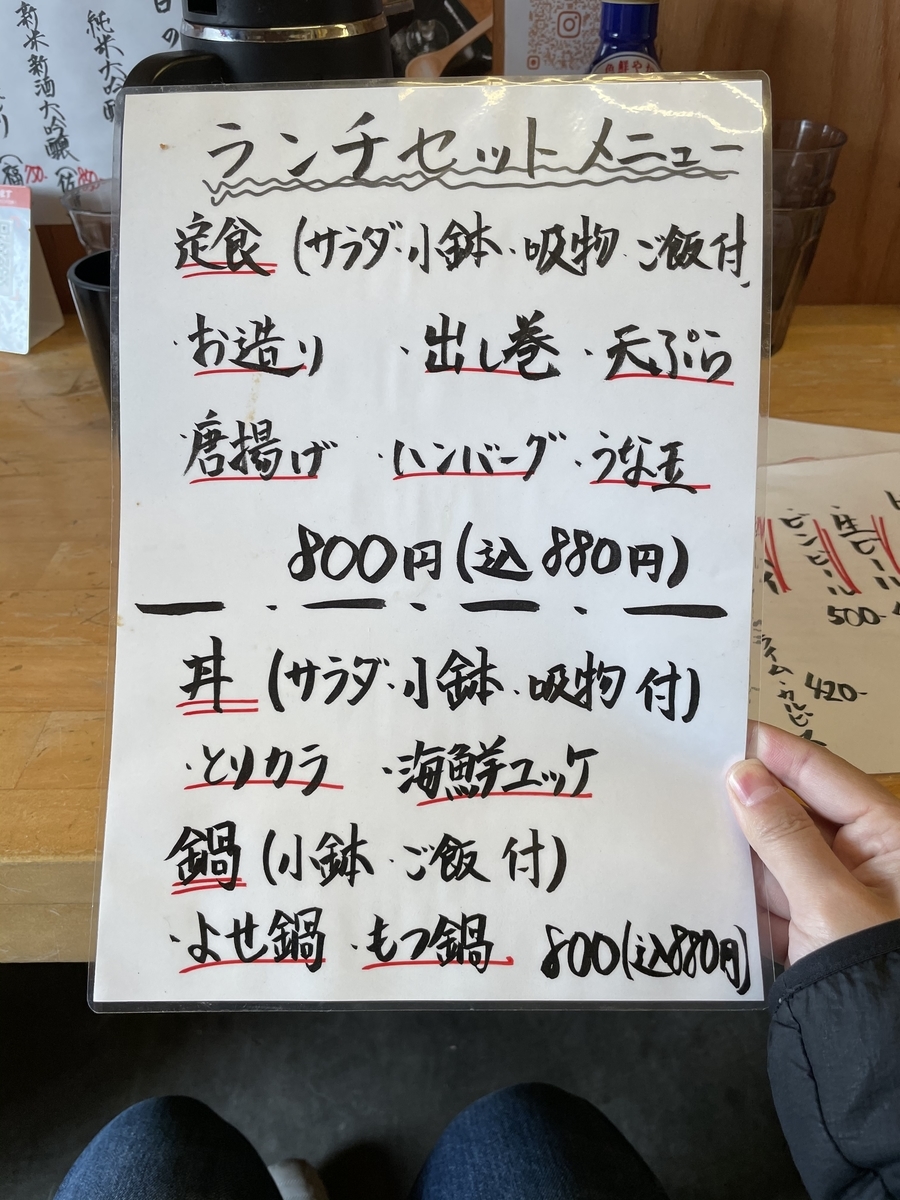 ランチセットメニュー
定食 (サラダ・小鉢・吸物・ご飯付
・お造り ・出し巻 ・天ぷら
・唐揚げ ・ハンバーグ ・うな玉
800円(込880円)
丼 (サラダ・小鉢・吸物付)
・とりカラ ・海鮮ユッケ
鍋 (小鉢・ご飯付)
・よせ鍋 ・もつ鍋 800(込880円)
純米大吟醸
新米新酒大吟醸
生ビール
ビンビール
500-
420-